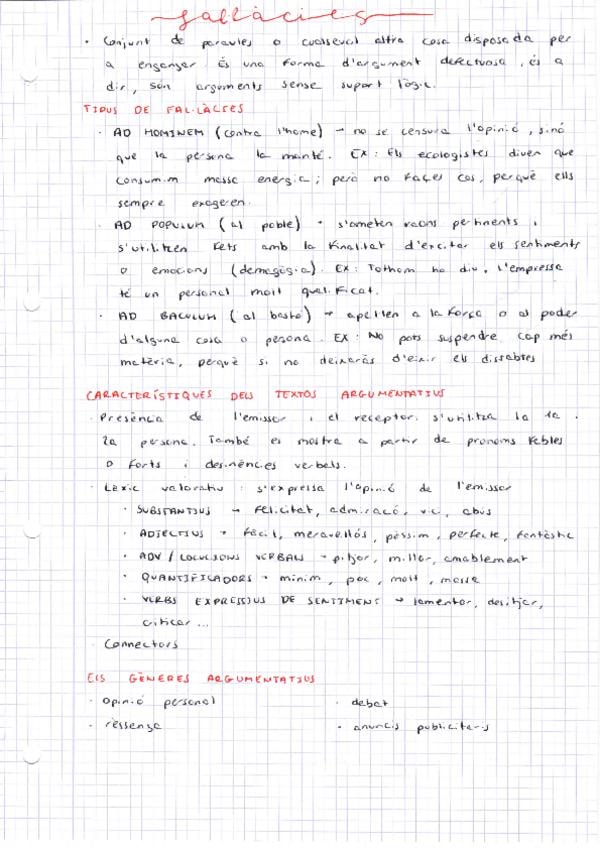 fal·làcies
· Conjunt de paraules o qualsevol altra cosa disposada per
a enganyar és una forma d'argument defectuosa, és a
dir, són arguments sense suport lògic.
TIPUS DE FAL·LÀCIES
· AD HOMINEM (contra l'home) → no se censura l'opinió, sinó
que la persona la manté. EX: Els ecologistes diuen que
consumim massa energia; però no faces cas, perquè ells
sempre exageren.
· AD POPULUM (al poble) · s'ometen raons pertinents i
s'utilitzen fets amb la finalitat d'excitar els sentiments
o emocions (demagògia). EX: Tothom ho diu, l'empressa
té un personal molt qualificat.
· AD BACULUM (al bastó) → apel·len a la força o al poder
d'alguna cosa o persona. EX: No pots suspendre cap més
matèria, perquè si no deixaràs d'eixir els dissabtes
CARACTERÍSTIQUES DELS TEXTOS ARGUMENTATIUS
· Presència de l'emissor i el receptor. s'utilitza la 1a i
2a persona. També es mostra a partir de pronoms febles
o forts i desinències verbals.
· Lèxic valoratiu: s'expressa l'opinió de l'emissor
· SUBSTANTIUS → felicitat, admiració, vici, abús
· ADJECTIUS → fàcil, meravellós, pèssim, perfecte, fantàstic
· ADV / LOCUCIONS VERBALS → pitjor, millor, amablement
· QUANTIFICADORS → mínim, poc, molt, massa
· VERBS EXPRESSIUS DE SENTIMENT → lamentar, desitjar,
criticar...
· Connectors
ELS GÈNERES ARGUMENTATIUS
· opinió personal · debat
· ressenya · anuncis publicitaris